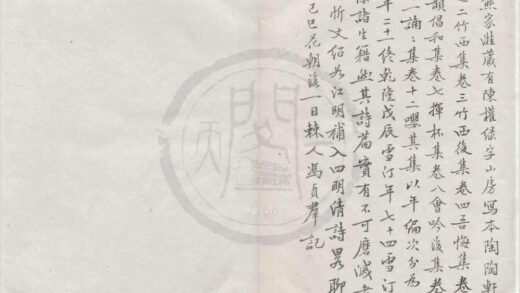 熊家灘藏有陳權緑字山房寫本陶陶軒
之二竹西集卷三竹西後集卷四吾悔集卷
韻倡和集卷七揮杯集卷八會吟後集卷
一誦:集卷十二嚶其集以年編次分為
年二十一終乾隆戊辰雪汀年七十四雪汀
語生籍興其詩篇實有不可磨滅者
忻丈紹為江明補入四明清詩畧聊
己巳花朝後一日棘人馮貞羣記